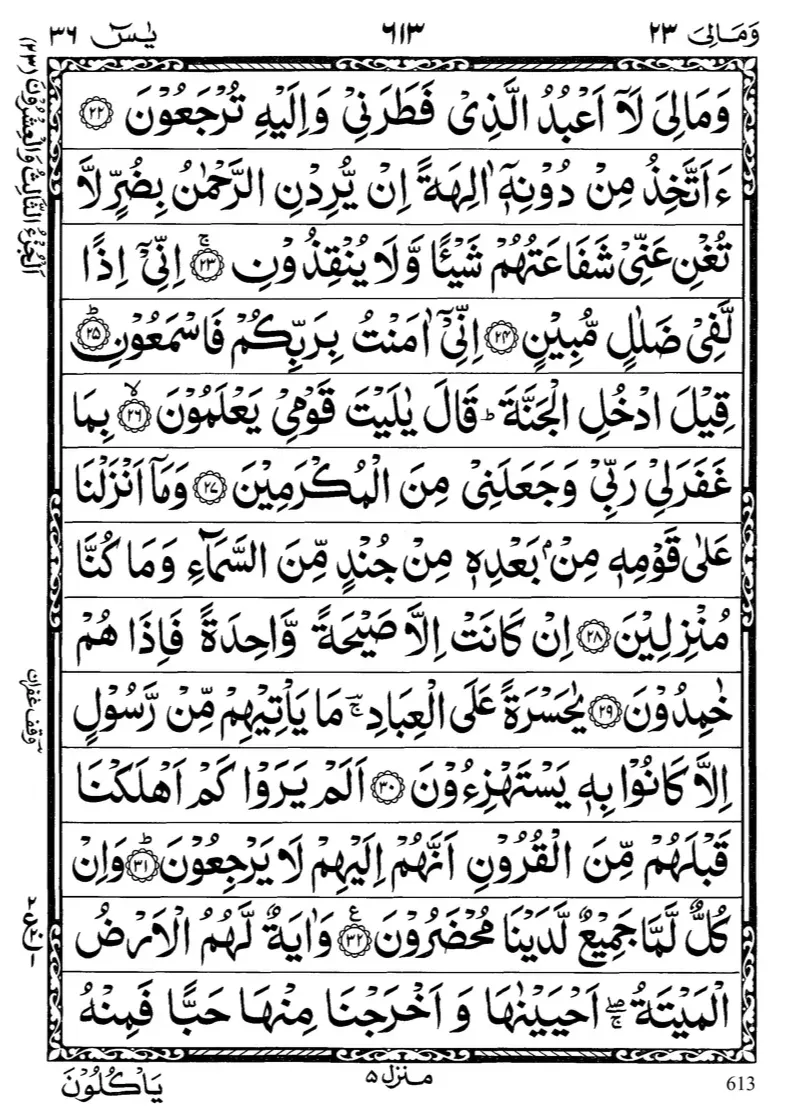 وَمَالِىَ ٢٣
٦١٣
يٰسٓ ٣٦
وَمَالِىَ لَآ اَعْبُدُ الَّذِىْ فَطَرَنِىْ وَاِلَيْهِ تُرْجَعُوْنَ ﴿٢٢﴾
ءَاَتَّخِذُ مِنْ دُوْنِهٖٓ اٰلِهَةً اِنْ يُّرِدْنِ الرَّحْمٰنُ بِضُرٍّ لَّا
تُغْنِ عَنِّىْ شَفَاعَتُهُمْ شَيْـًٔا وَّلَا يُنْقِذُوْنِ ﴿٢٣﴾ۚ اِنِّىْٓ اِذًا
لَّفِىْ ضَلٰلٍ مُّبِيْنٍ ﴿٢٤﴾ اِنِّىْٓ اٰمَنْتُ بِرَبِّكُمْ فَاسْمَعُوْنِ ﴿٢٥﴾ؕ
قِيْلَ ادْخُلِ الْجَنَّةَ ؕ قَالَ يٰلَيْتَ قَوْمِىْ يَعْلَمُوْنَ ﴿٢٦﴾ۙ بِمَا
غَفَرَلِىْ رَبِّىْ وَجَعَلَنِىْ مِنَ الْمُكْرَمِيْنَ ﴿٢٧﴾ وَمَآ اَنْزَلْنَا
عَلٰى قَوْمِهٖ مِنْۢ بَعْدِهٖ مِنْ جُنْدٍ مِّنَ السَّمَآءِ وَمَا كُنَّا
مُنْزِلِيْنَ ﴿٢٨﴾ اِنْ كَانَتْ اِلَّا صَيْحَةً وَّاحِدَةً فَاِذَا هُمْ
خٰمِدُوْنَ ﴿٢٩﴾ يٰحَسْرَةً عَلَى الْعِبَادِ ۚ مَا يَاْتِيْهِمْ مِّنْ رَّسُوْلٍ
اِلَّا كَانُوْا بِهٖ يَسْتَهْزِءُوْنَ ﴿٣٠﴾ اَلَمْ يَرَوْا كَمْ اَهْلَكْنَا
قَبْلَهُمْ مِّنَ الْقُرُوْنِ اَنَّهُمْ اِلَيْهِمْ لَا يَرْجِعُوْنَ ﴿٣١﴾ؕ وَاِنْ
كُلٌّ لَّمَّا جَمِيْعٌ لَّدَيْنَا مُحْضَرُوْنَ ﴿٣٢﴾ع وَاٰيَةٌ لَّهُمُ الْاَرْضُ
الْمَيْتَةُ ۖۚ اَحْيَيْنٰهَا وَ اَخْرَجْنَا مِنْهَا حَبًّا فَمِنْهُ
اَلْجُزْءُ الثَّالِثُ وَالْعِشْرُوْنَ (٢٣)
وقف غفران
٢
ع ٢٠
١
يَاْكُلُوْنَ
منزل ٥
613